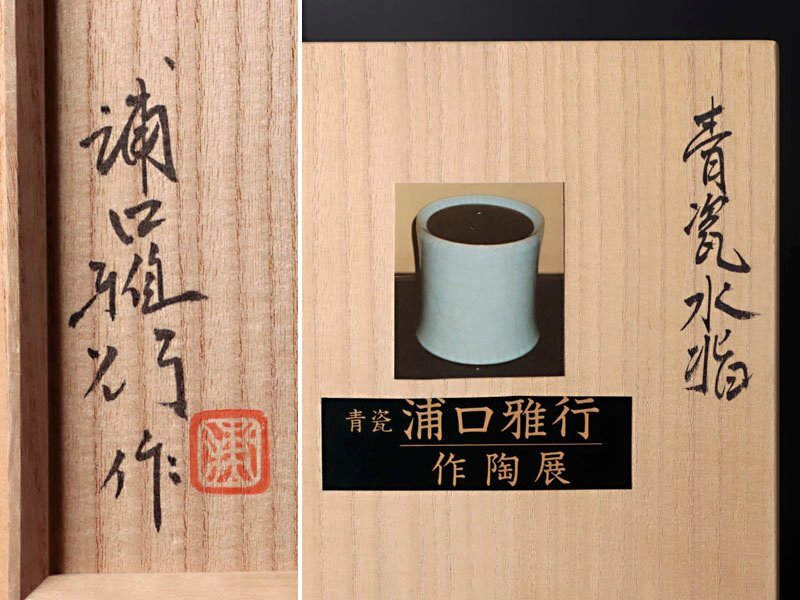 浦口雅行作
青瓷水指
青瓷 浦口雅行
作陶展